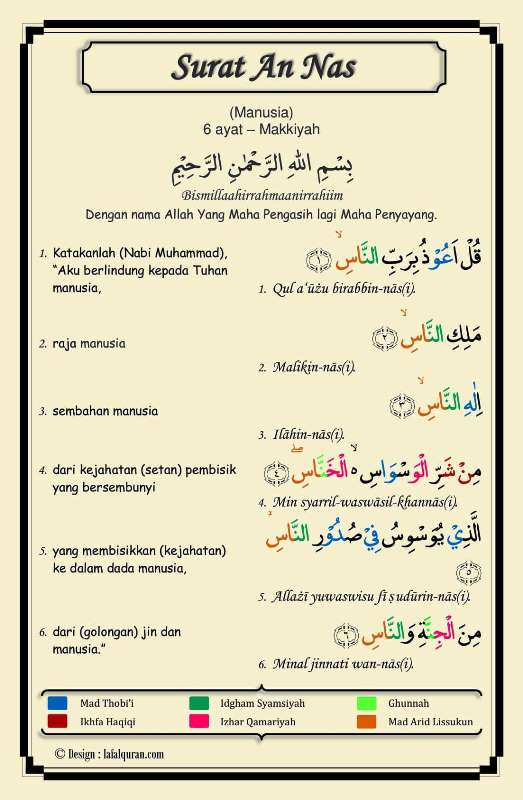 Surat An Nas
(Manusia)
6 ayat – Makkiyah
بِسْمِ اللهِ الرَّحْمٰنِ الرَّحِيْمِ
Bismillaahirrahmaanirrahiim
Dengan nama Allah Yang Maha Pengasih lagi Maha Penyayang.
1. Katakanlah (Nabi Muhammad),
“Aku berlindung kepada Tuhan
manusia,
قُلْ اَعُوْذُ بِرَبِّ النَّاسِۙ ۝١
1. Qul a‘ūżu birabbin-nās(i).
2. raja manusia
مَلِكِ النَّاسِۙ ۝٢
2. Malikin-nās(i).
3. sembahan manusia
اِلٰهِ النَّاسِۙ ۝٣
3. Ilāhin-nās(i).
4. dari kejahatan (setan) pembisik
yang bersembunyi
مِنْ شَرِّ الْوَسْوَاسِ ەۙ الْخَنَّاسِۖ ۝٤
4. Min syarril-waswāsil-khannās(i).
5. yang membisikkan (kejahatan)
ke dalam dada manusia,
الَّذِيْ يُوَسْوِسُ فِيْ صُدُوْرِ النَّاسِۙ
۝٥
5. Allażī yuwaswisu fī ṣudūrin-nās(i).
6. dari (golongan) jin dan
manusia.”
مِنَ الْجِنَّةِ وَالنَّاسِ ۝٦
6. Minal jinnati wan-nās(i).
Mad Thobi'i
Idgham Syamsiyah
Ghunnah
Ikhfa Haqiqi
Izhar Qamariyah
Mad Arid Lissukun
© Design : lafalquran.com